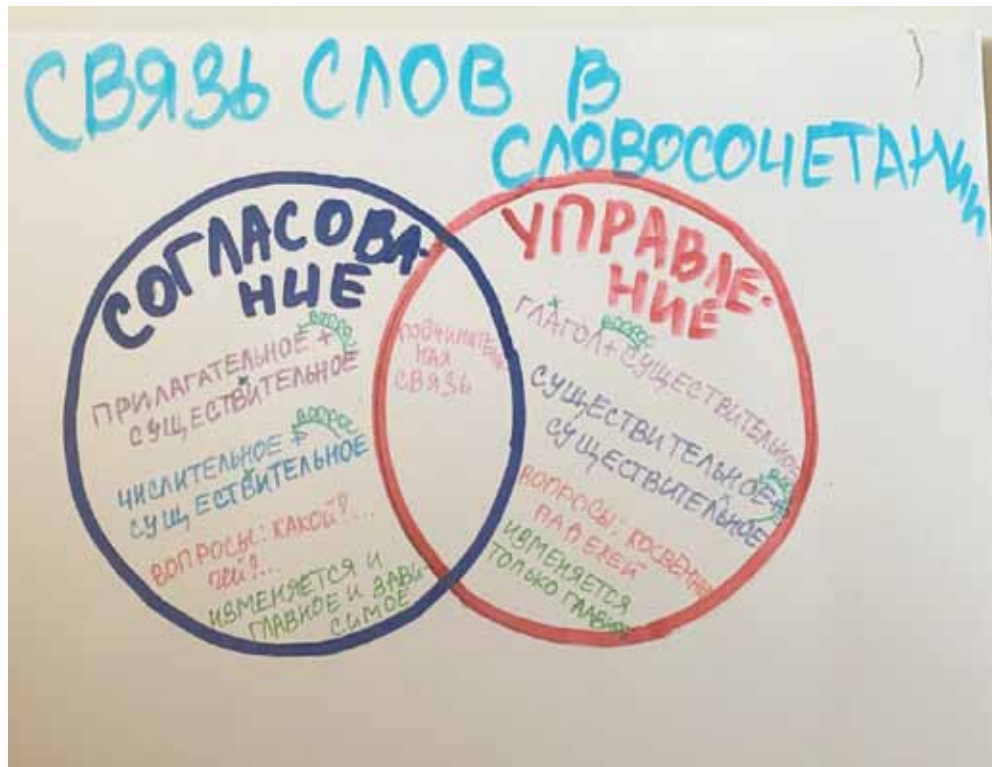 СВЯЗЬ СЛОВ В
СЛОВОСОЧЕТАНИИ
СОГЛАСОВА-
НИЕ
ВОПРОС
ПРИЛАГАТЕЛЬНОЕ +
СУЩЕСТВИТЕЛЬНОЕ
ВОПРОС
ЧИСЛИТЕЛЬНОЕ +
СУЩЕСТВИТЕЛЬНОЕ
ВОПРОСЫ: КАКОЙ?...
ЧЕЙ?...
ИЗМЕНЯЕТСЯ И
ГЛАВНОЕ И ЗАВИ-
СИМОЕ
ПОДЧИНИТЕЛЬ-
НАЯ
СВЯЗЬ
УПРАВЛЕ-
НИЕ
ВОПРОС
ГЛАГОЛ + СУЩЕСТВИТЕЛЬНОЕ
СУЩЕСТВИТЕЛЬНОЕ +
СУЩЕСТВИТЕЛЬНОЕ
ВОПРОСЫ: КОСВЕННЫХ
ПАДЕЖЕЙ
ИЗМЕНЯЕТСЯ
ТОЛЬКО ГЛАВНОЕ